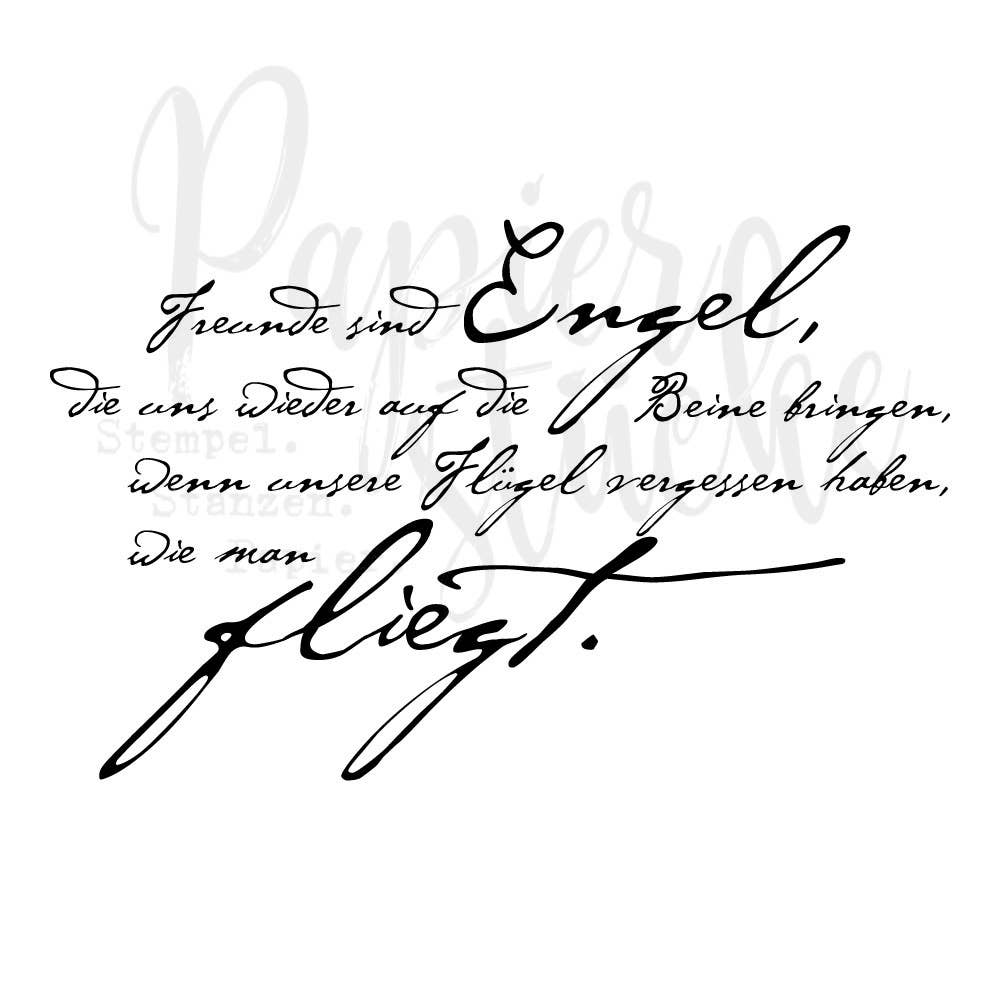 Papier
Stücke
Stempel.
Stanzen.
Papier
Freunde sind Engel,
die uns wieder auf die Beine bringen,
wenn unsere Flügel vergessen haben,
wie man
fliegt.